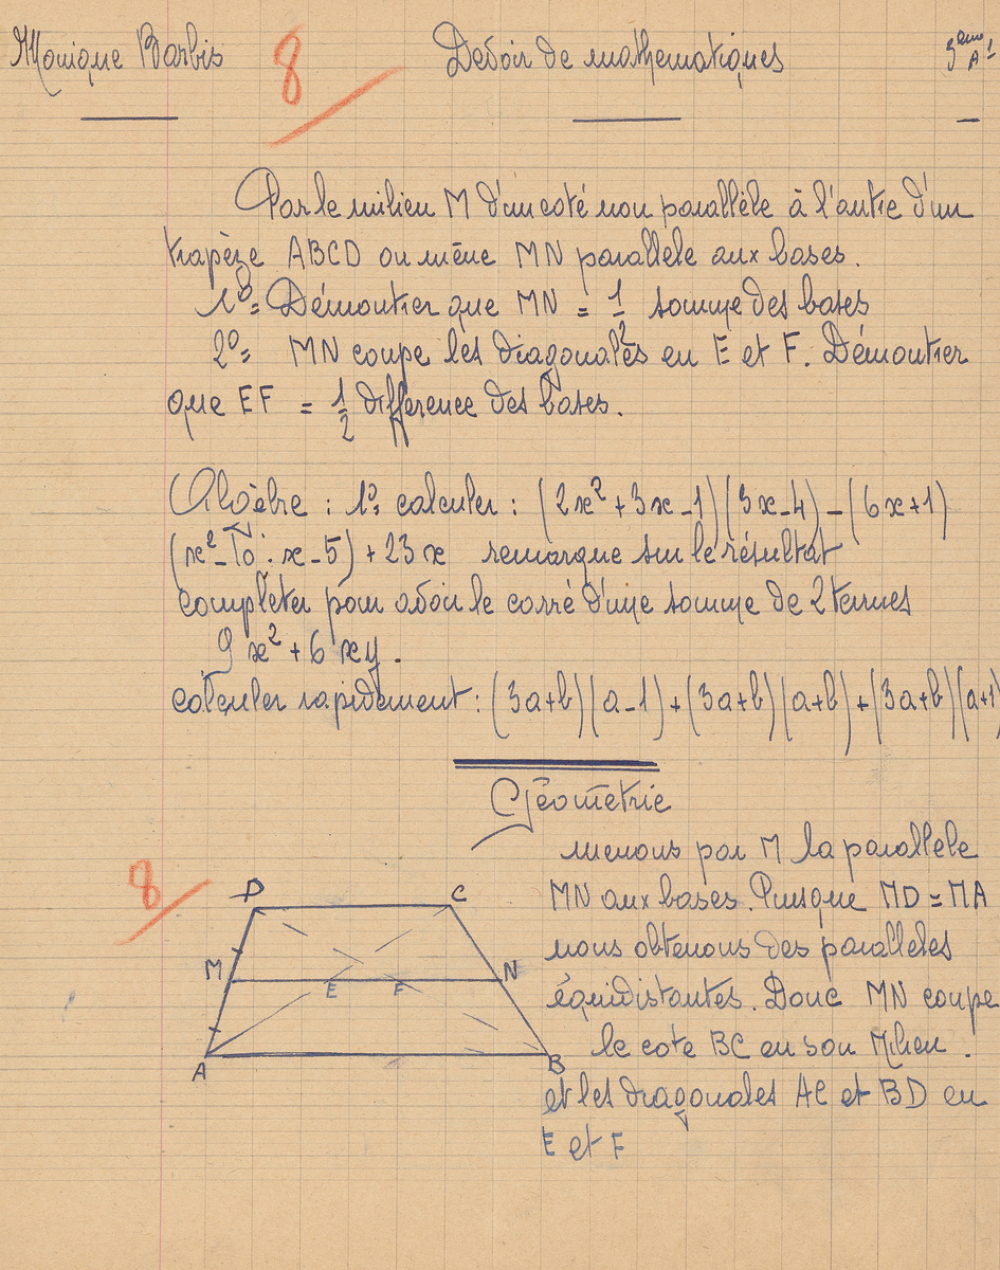 Monique Barbis 8 Devoir de mathematiques 3eme A1
Par le milieu M d'un coté non parallèle à l'autre d'un
trapèze ABCD on mène MN parallele aux bases.
1º = Démontrer que MN = 1/2 somme des bases
2º = MN coupe les diagonales en E et F. Démontrer
que EF = 1/2 différence des bases.
Algèbre : 1º calculer : (2x² + 3x - 1)(3x - 4) - (6x + 1)
(x² - x - 5) + 23x remarque sur le résultat
completer pour avoir le carré d'une somme de 2 termes
9x² + 6xy.
calculer rapidement : (3a+b)(a-1) + (3a+b)(a+b) + (3a+b)(a+1)
Géometrie
menons par M la parallèle
8
MN aux bases. Puisque MD = MA
nous obtenons des paralleles
équidistantes. Donc MN coupe
le cote BC en son Milieu.
et les diagonales AC et BD en
E et F
D C
M E F N
A B